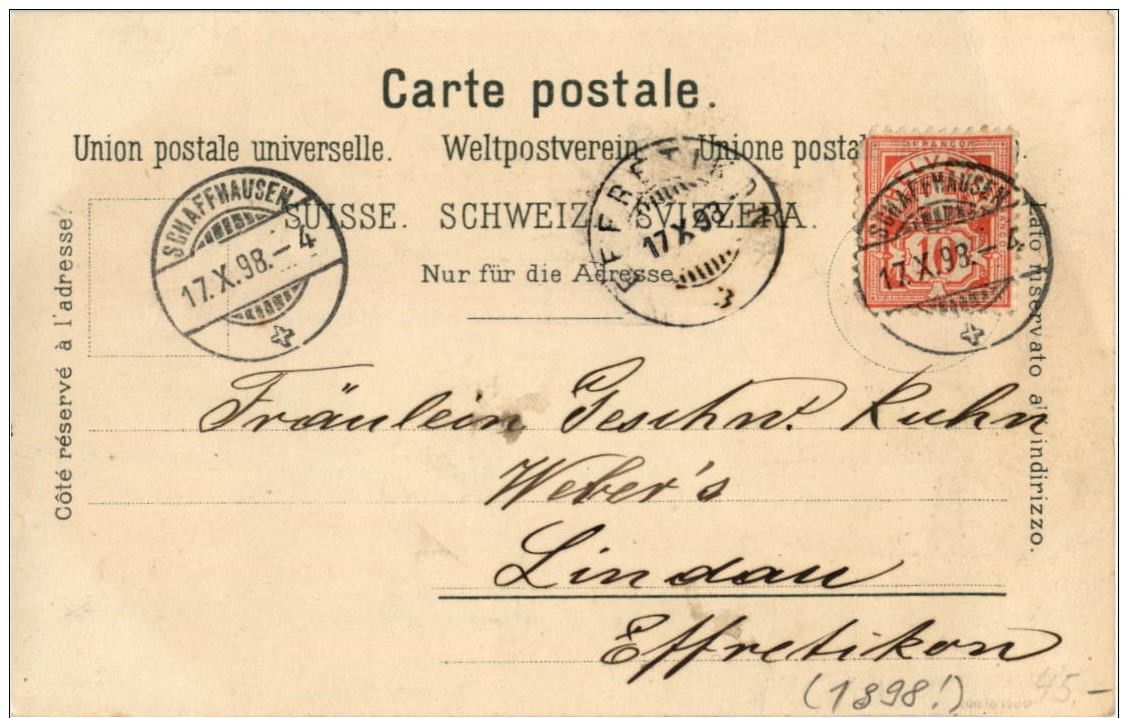 Carte postale.
Union postale universelle. Weltpostverein. Unione posta
SUISSE. SCHWEIZ. SVIZZERA.
Nur für die Adresse.
Côté réservé à l'adresse.
Lato riservato all'indirizzo.
SCHAFFHAUSEN
17.X.98.–4
EFFRETIKON
17.X.98
3
FRANCO
10
SCHAFFHAUSEN
17.X.98.–4
Fräulein Geschw. Kuhn
Weber's
Lindau
Effretikon
(1898!)
45.–